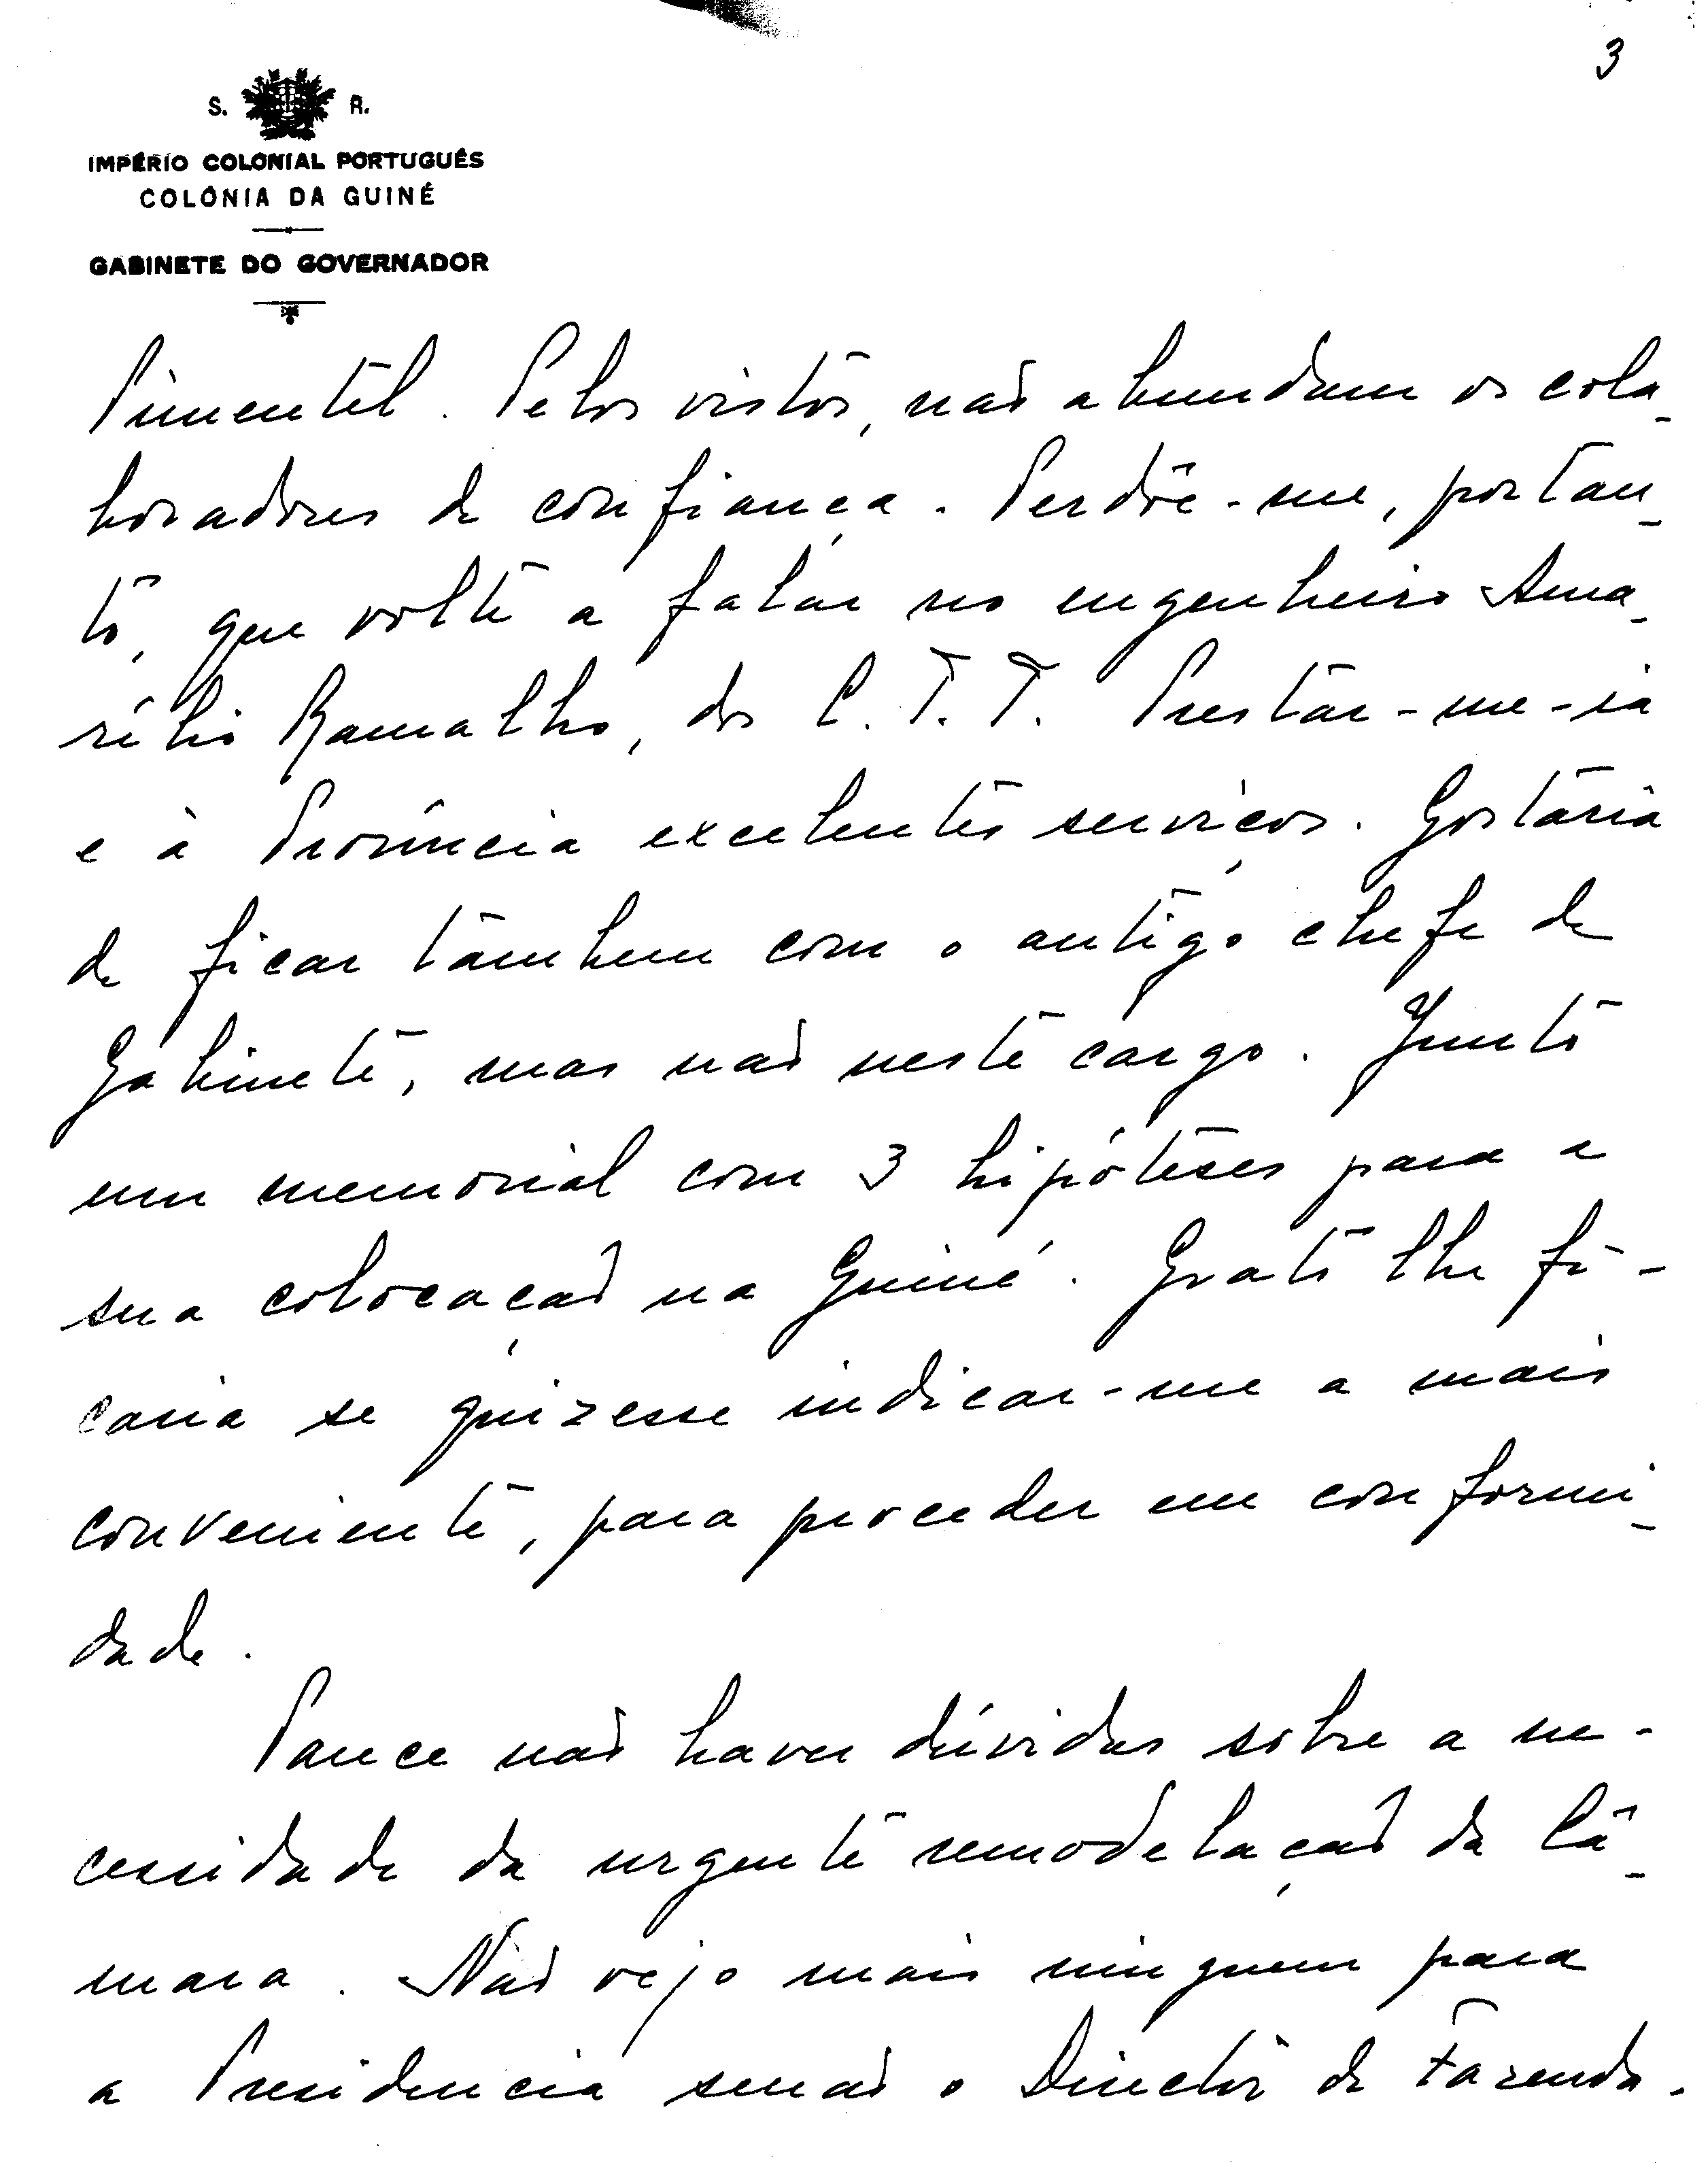 3
S. R.
IMPÉRIO COLONIAL PORTUGUÊS
COLÓNIA DA GUINÉ
GABINETE DO GOVERNADOR
Pimentel. Pelos vistos, não abundam os cola-
boradores de confiança. Perdôe-me, portan-
to, que volte a falar no engenheiro Ama-
rílio Ramalho, dos C. T. T. Prestar-me-ia
e à Província excelentes serviços. Gostaria
de ficar tambem com o antigo chefe de
Gabinete, mas não neste cargo. Junto
um memorial com 3 hipóteses para a
sua colocação na Guiné. Grato lhe fi-
caria se quizesse indicar-me a mais
conveniente, para proceder em conformi-
dade.
Parece não haver dúvidas sobre a ne-
cessidade da urgente remodelação da Câ-
mara. Não vejo mais ninguem para
a Presidencia senão o Director de Fazenda.